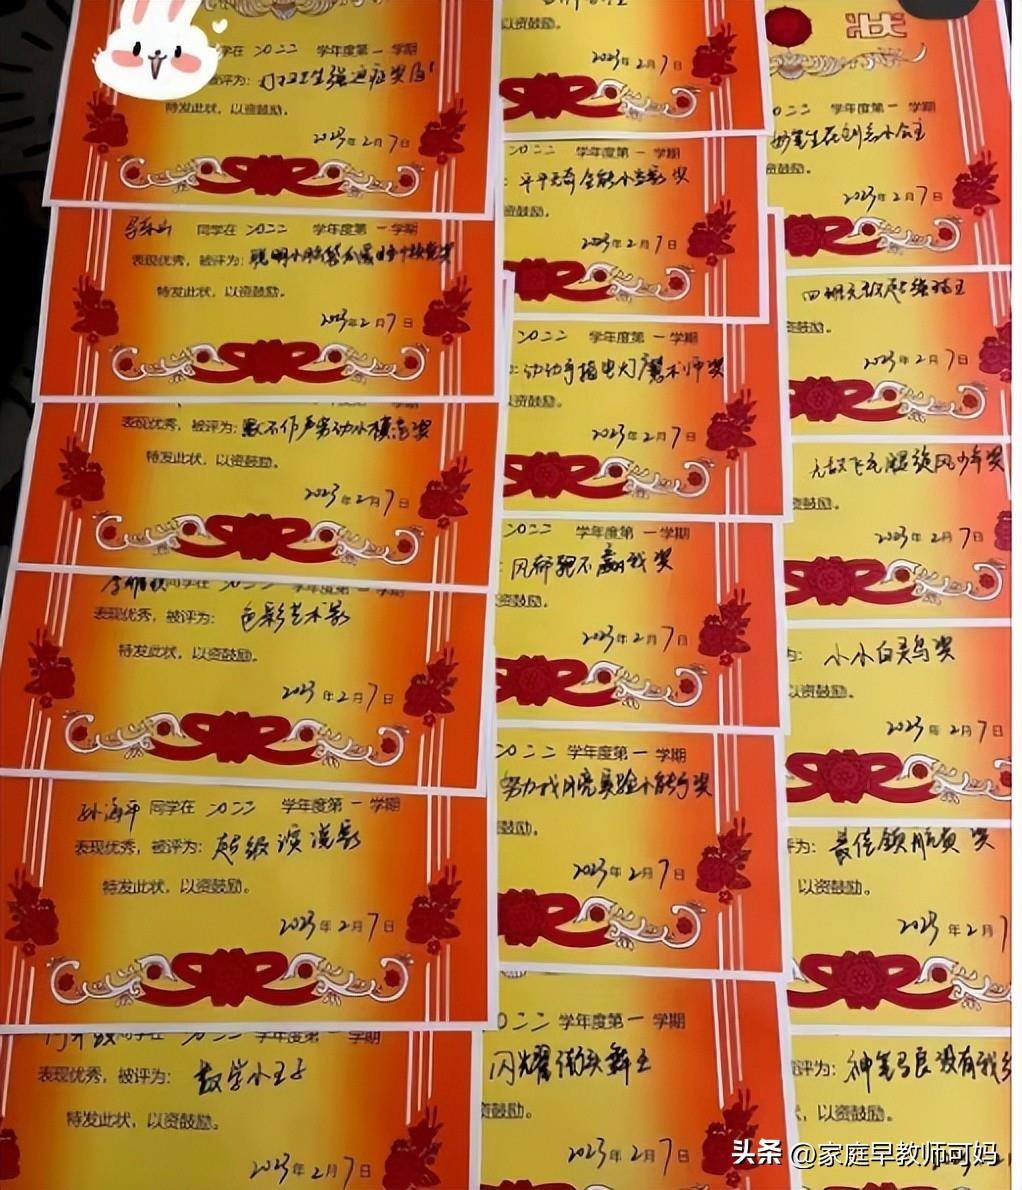 同学在 二〇二二 学年度第一学期
被评为:打扫卫生强迫症奖
特发此状,以资鼓励。
2023年2月7日
同学在 二〇二二 学年度第一学期
表现优秀,被评为:聪明小脑袋
特发此状,以资鼓励。
2023年2月7日
表现优秀,被评为:默不作声劳动小模范奖
特发此状,以资鼓励。
2023年2月7日
同学在
表现优秀,被评为:色彩艺术家
特发此状,以资鼓励。
2023年2月7日
孙海平 同学在 二〇二二 学年度第一学期
表现优秀,被评为:超级演说家
特发此状,以资鼓励。
2023年2月7日
同学在 二〇二二 学年度第一学期
表现优秀,被评为:数学小王子
特发此状,以资鼓励。
2023年2月7日
以资鼓励。
2023年2月7日
二〇二二 学年度第一学期
:平平无奇全能小专家奖
资鼓励。
2023年2月7日
二〇二二 学年度第一学期
:动动手指电灯魔术师奖
以资鼓励。
2023年2月7日
二〇二二 学年度第一学期
:风都跑不赢我奖
资鼓励。
2023年2月7日
二〇二二 学年度第一学期
努力找月亮实验小能手奖
鼓励。
2023年2月7日
二〇二二 学年度第一学期
闪耀街头舞王
资鼓励。
2023年2月7日
状
二〇二二 学年度第一学期
妙笔生花创意小公主
资鼓励。
2023年2月7日
四班无敌
资鼓励。
2023年2月7日
无敌飞毛腿旋风少年奖
资鼓励。
2023年2月7日
为:小小百灵鸟奖
以资鼓励。
2023年2月7日
评为:最佳领航员奖
以资鼓励。
2023年2月7
评为:神笔马良没有我
以资鼓励。
头条 @家庭早教师可妈